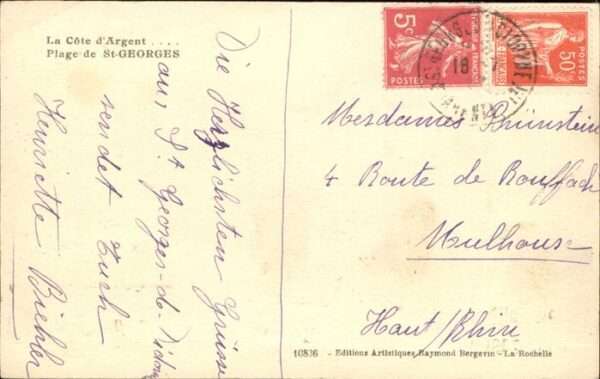 La Côte d'Argent ....
Plage de St-GEORGES
Die Herzlichsten Grüsse
aus St Georges-de-Didonne
sendet Euch
Henriette
5c
POSTES
18
50c
POSTES
Mesdames Brünstein
4 Route de Rouffach
Mulhouse
Haut/Rhin
10836 - Editions Artistiques Raymond Bergevin - La Rochelle